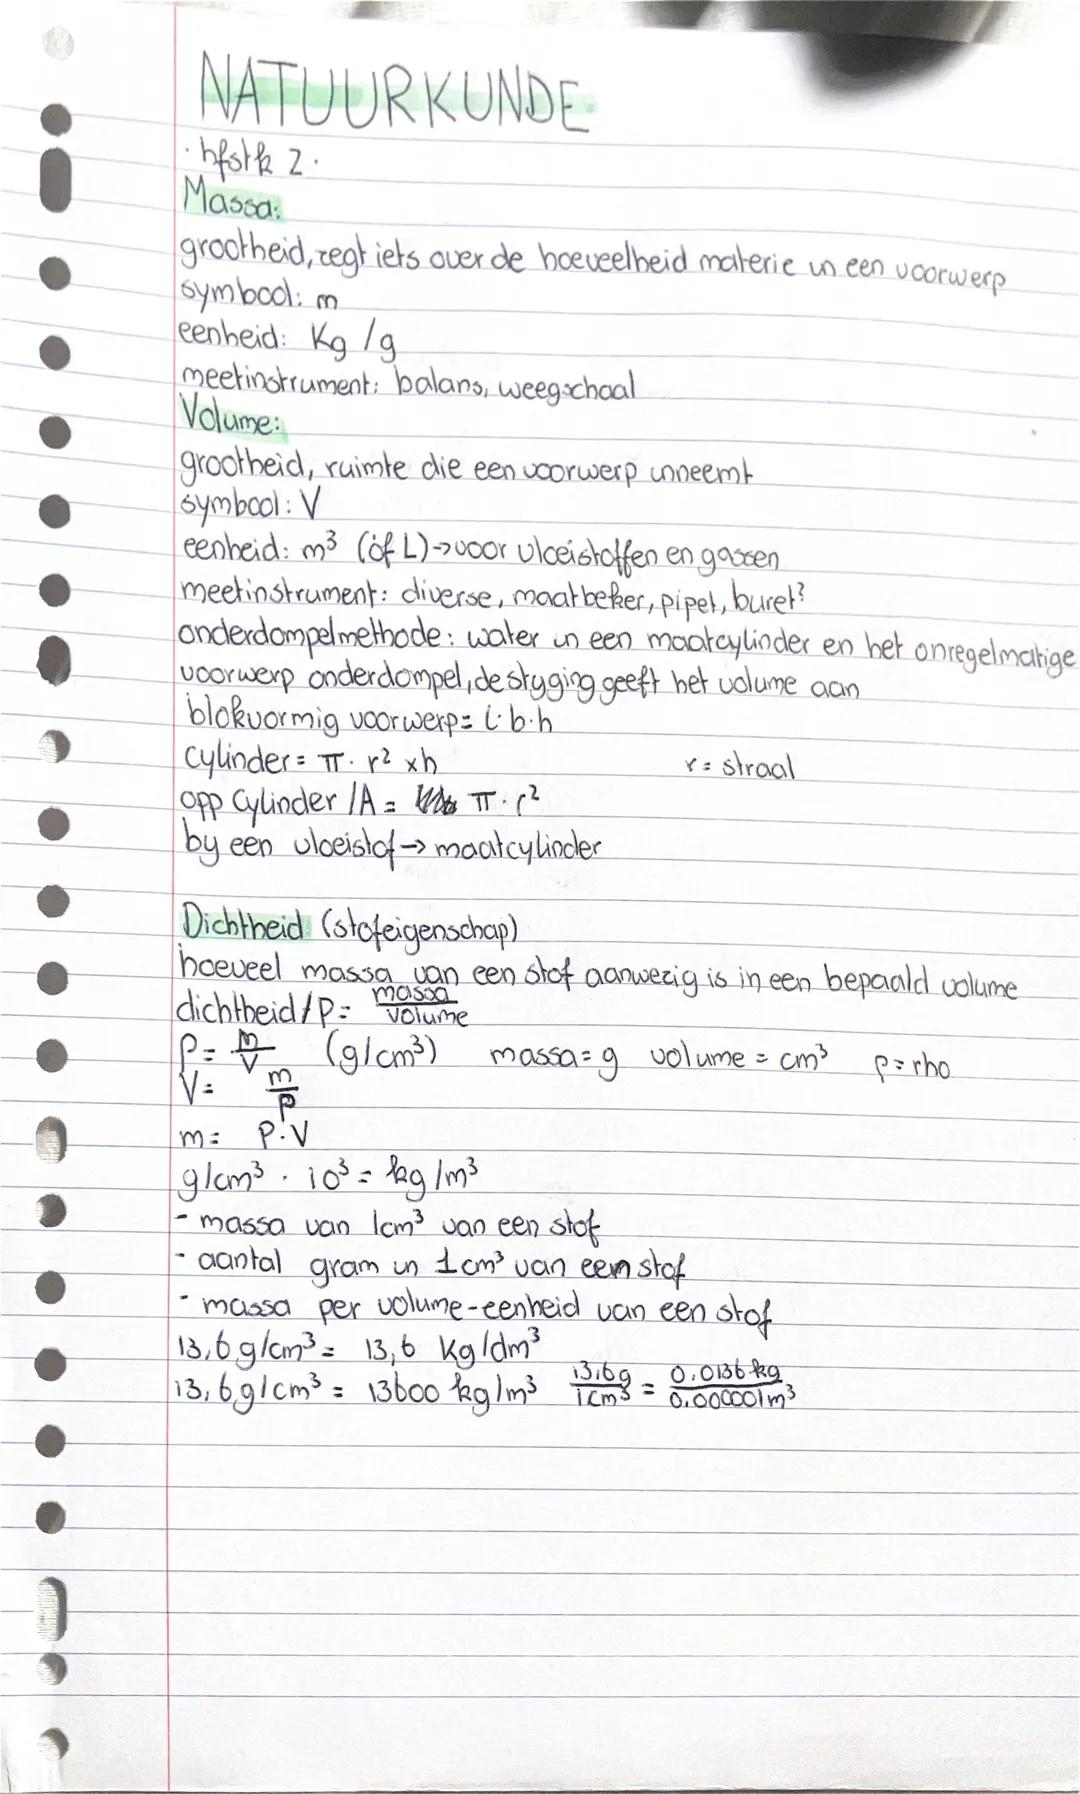 NATUURKUNDE
· hfstk 2 ·
Massa:
grootheid, zegt iets over de hoeveelheid materie in een voorwerp
symbool: m
eenheid: Kg / g
meetinstrument: balans, weegschaal
Volume:
grootheid, ruimte die een voorwerp inneemt
symbool: V
eenheid: m³ (óf L) → voor vloeistoffen en gassen
meetinstrument: diverse, maatbeker, pipet, buret?
onderdompelmethode: water in een maatcylinder en het onregelmatige
voorwerp onderdompel, de styging geeft het volume aan
blokvormig voorwerp = l · b · h
cylinder = π · r² × h r = straal
opp cylinder / A = π · r²
by een vloeistof → maatcylinder
Dichtheid (stofeigenschap)
hoeveel massa van een stof aanwezig is in een bepaald volume
dichtheid / ρ = massa / volume
ρ = m / V (g/cm³) massa = g volume = cm³ ρ = rho
V = m / ρ
m = ρ · V
g/cm³ · 10³ = kg/m³
- massa van 1cm³ van een stof
- aantal gram in 1cm³ van een stof
- massa per volume-eenheid van een stof
13,6 g/cm³ = 13,6 Kg/dm³
13,6 g/cm³ = 13600 kg/m³ 13,6g / 1cm³ = 0.0136 kg / 0.000001 m³